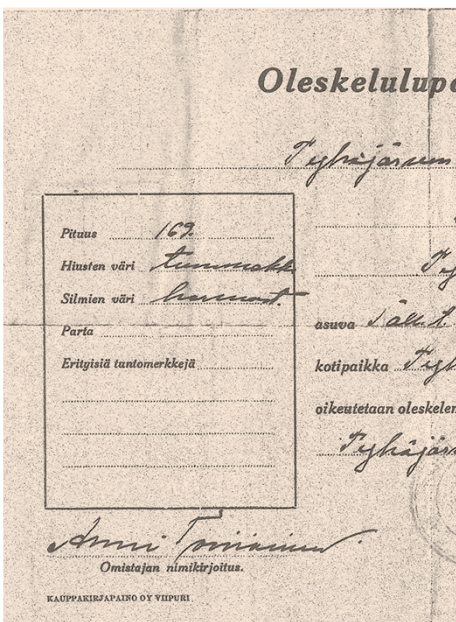 Oleskelulupa
Pyhäjärven
Pituus 169.
Hiusten väri tummahk
Silmien väri harmaat.
Parta
asuva
Erityisiä tuntomerkkejä
kotipaikka Pyh
oikeutetaan oleskelen
Pyhäjärv
Anni Toiviainen.
Omistajan nimikirjoitus.
KAUPPAKIRJAPAINO OY VIIPURI